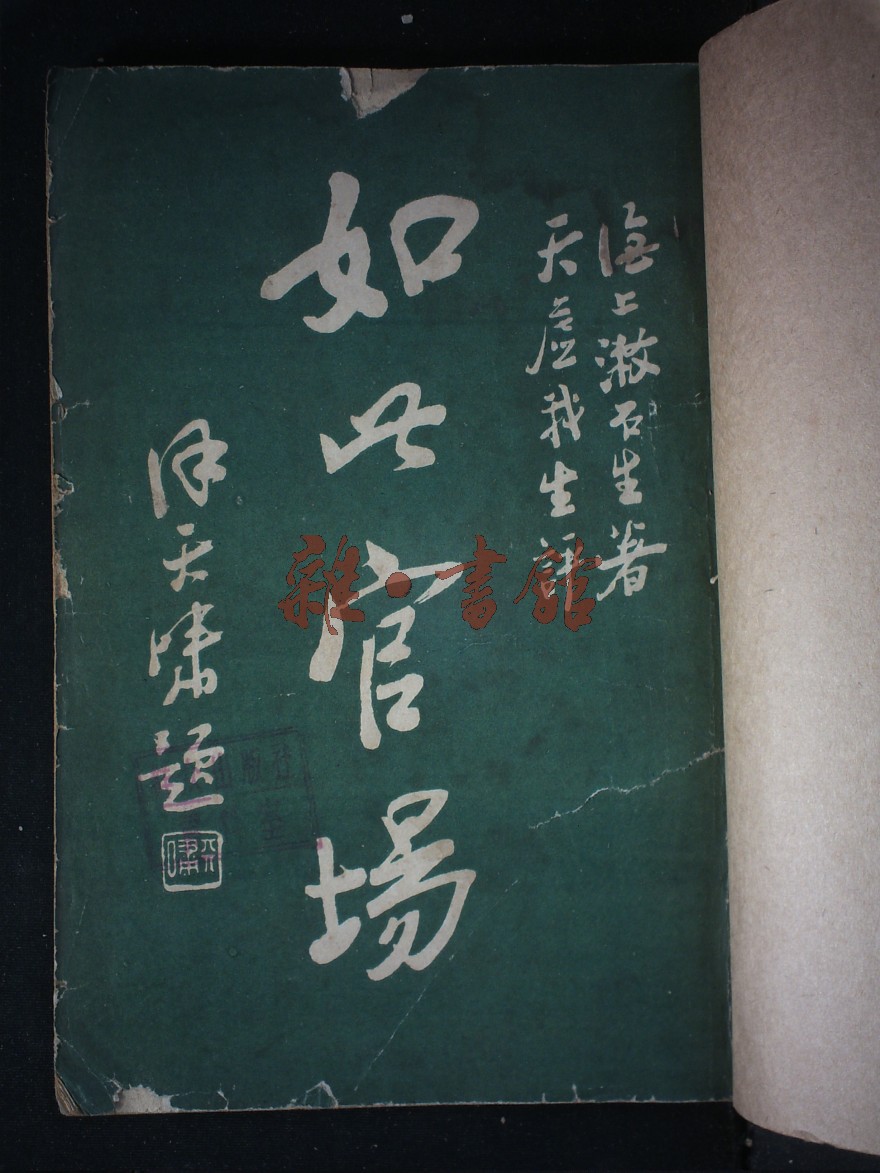 海上漱石生著
天虛我生評
如此官場
徐天嘯題
天嘯
雜·書館